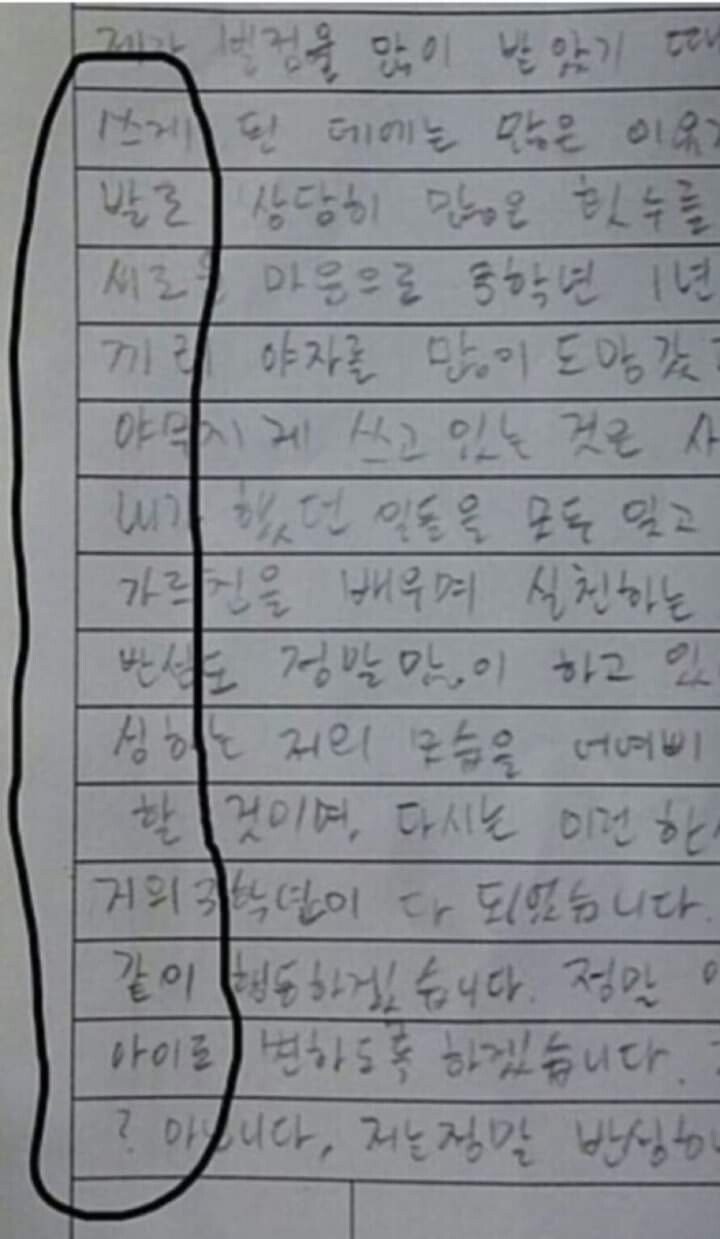 제가 벌점을 많이 받았기 때
쓰게 된 데에는 많은 이유가
발로 상당히 많은 횟수를
새로운 마음으로 중학년 1년
끼리 야자를 많이 도망갔
야무지게 쓰고 있는 것은 사
내가 했던 일들을 모두 잊고
가르친을 배우며 실천하는
반성도 정말 많이 하고 있
성하는 저의 모습을 어여삐
할 것이며, 다시는 이런 한
거의 3학년이 다 되었습니다.
같이 행동하겠습니다. 정말
아이로 변하도록 하겠습니다.
? 아닙니다, 저는 정말 반성하